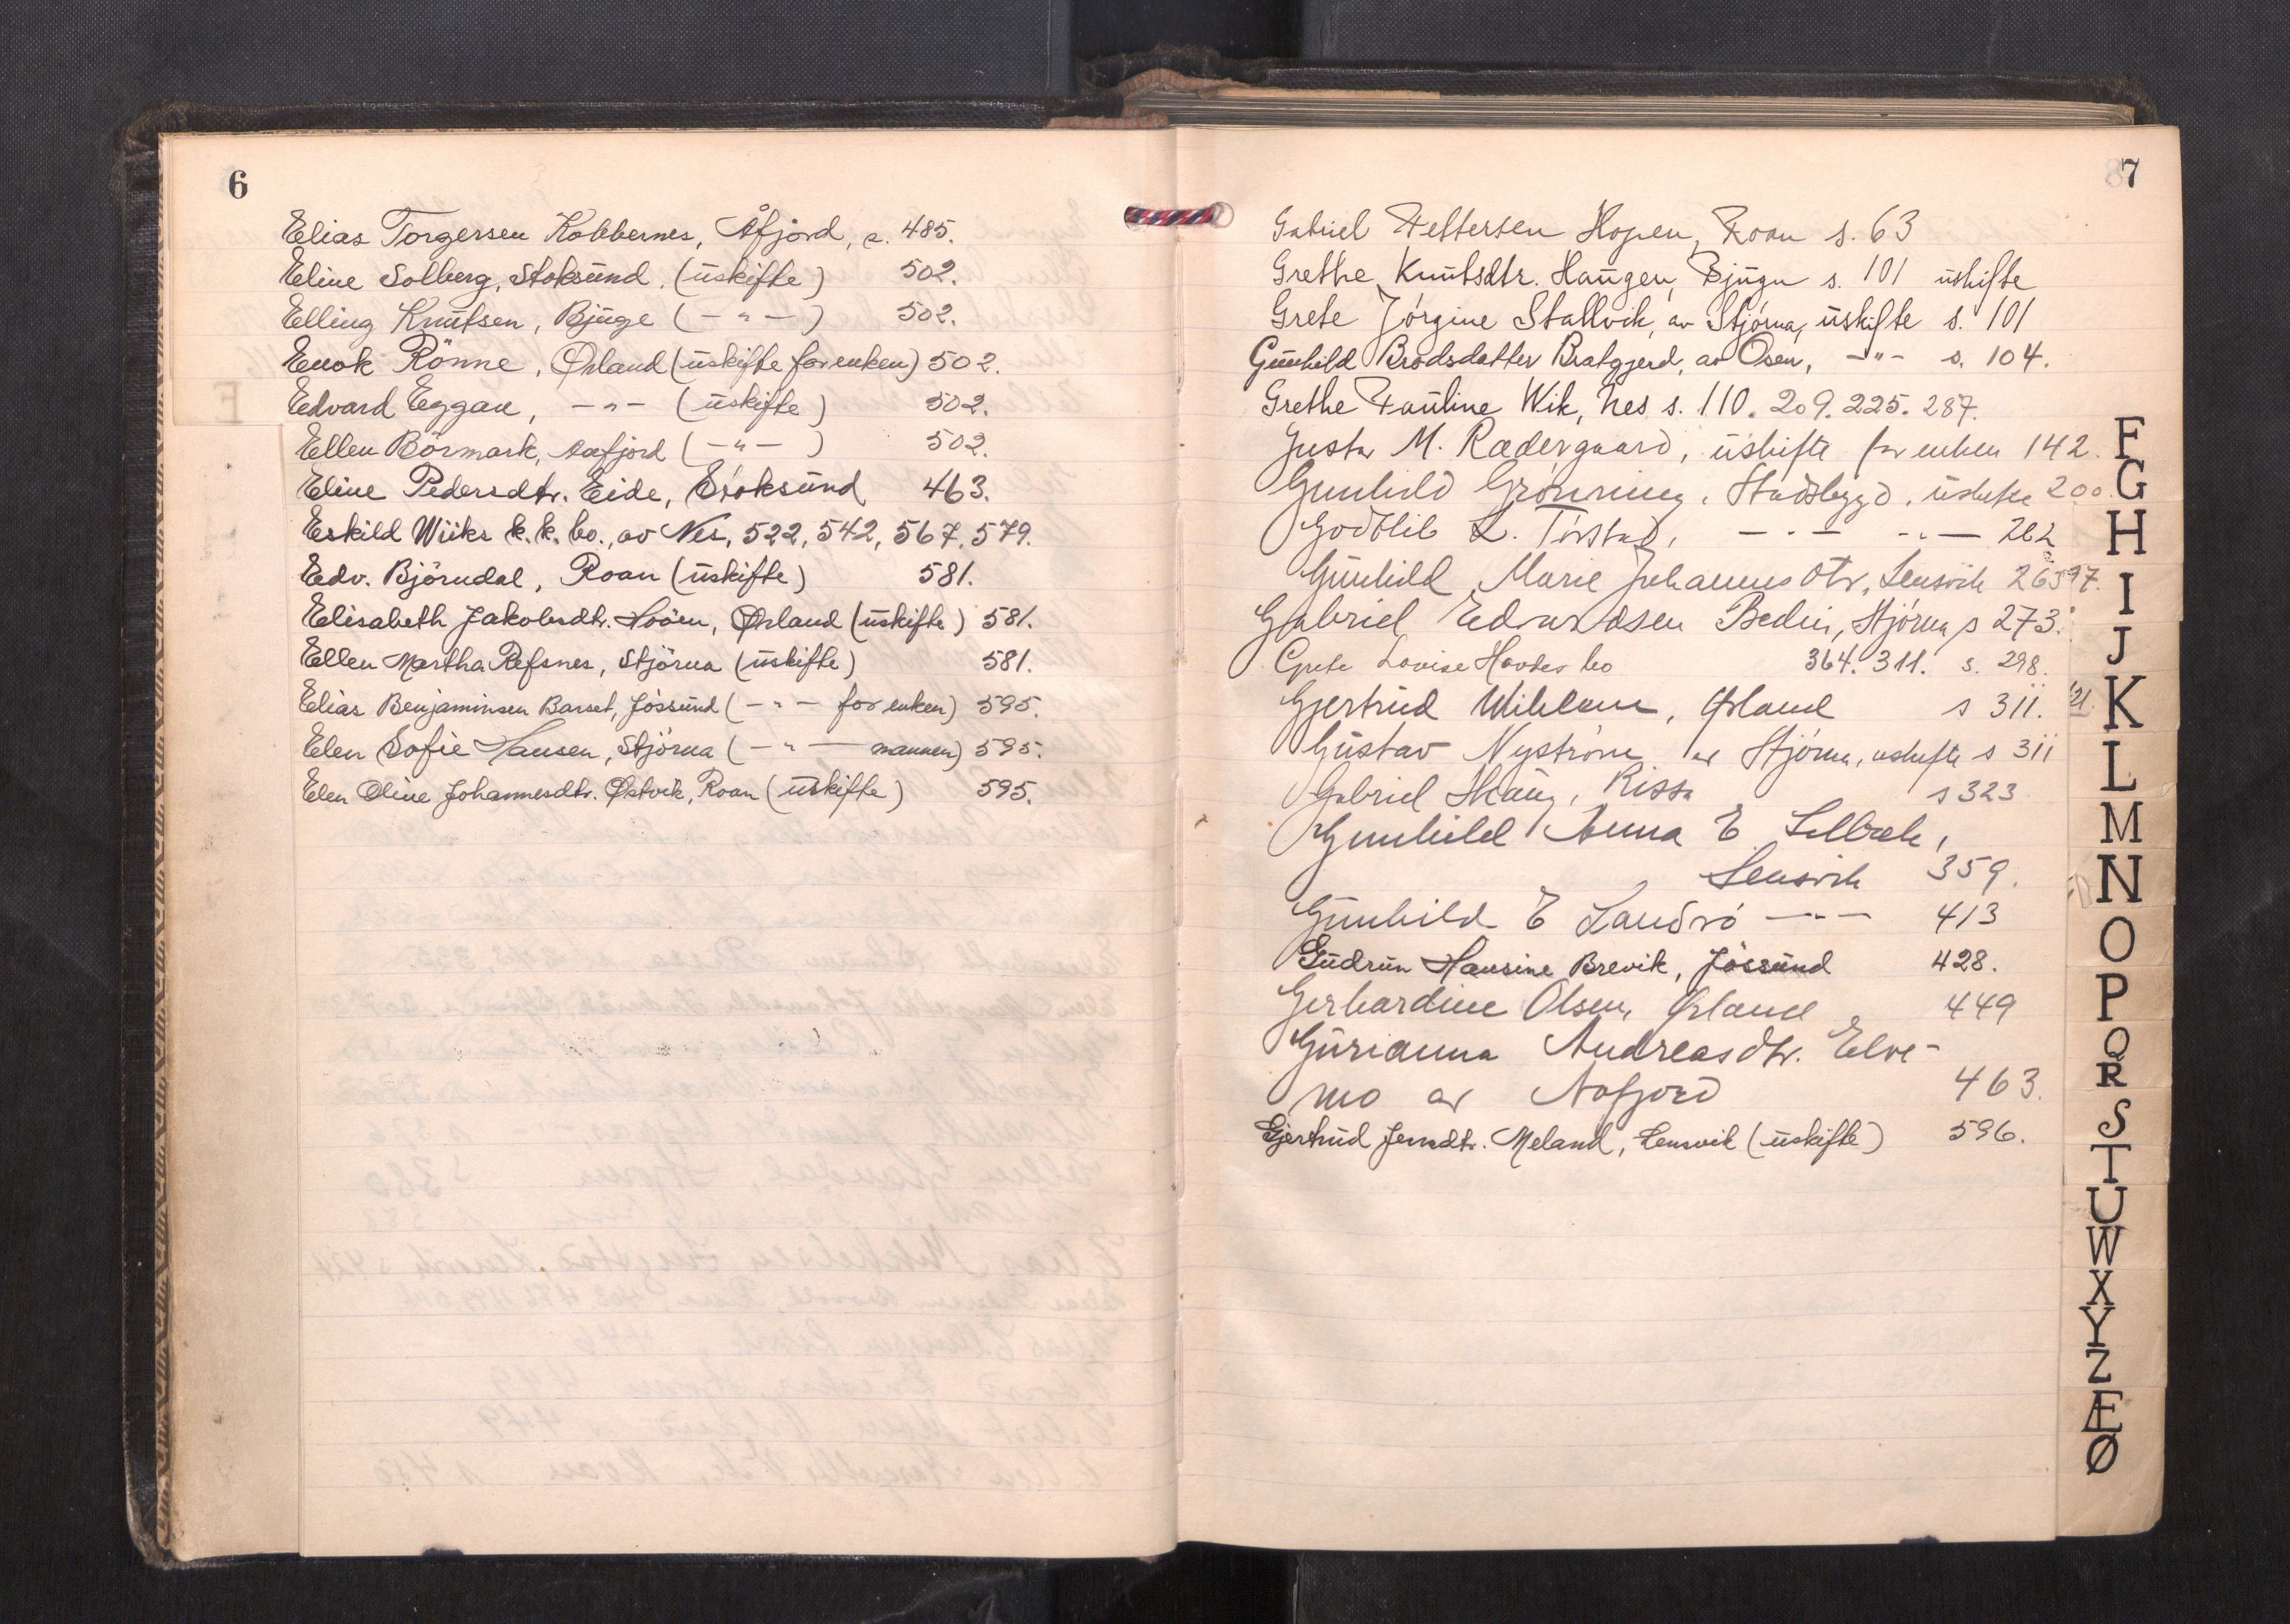 6
Elias Torgersen Kobbernes, Åfjord, s. 485.
Eline Solberg, Stoksund. (uskifte) 502.
Elling Knutsen, Bjuge (-"-) 502.
Enok Rönne, Ørland (uskifte for enken) 502.
Edvard Eggan, -"- (uskifte) 502.
Ellen Börmark, Aafjord (-"-) 502.
Eline Pedersdtr. Eide, Stoksund, 463.
Eskild Wiiks k.k. bo., av Nes, 522, 542, 567, 579.
Edv. Björndal, Roan (uskifte) 581.
Elisabeth Jakobsdtr. Hoöen, Ørland (uskifte) 581.
Ellen Martha Refsnes, Stjörna (uskifte) 581.
Elias Benjaminsen Barset, Jössund (-"- for enken) 595.
Elen Sofie Hansen, Stjörna (-"- mannen) 595.
Elen Oline Johannesdtr. Östvik, Roan (uskifte) 595.
7
Gabriel Pettersen Hopen, Roan s. 63
Grethe Knutsdtr. Haugen, Bjugn s. 101 uskifte
Grete Jörgine Stallvik, av Stjörna, uskifte s. 101
Gunhild Brodsdatter Bratgjerd, av Osen, -"- s. 104.
Grethe Pauline Wik, Nes s. 110. 209. 225. 287.
Gustav M. Rædergaard, uskifte for enken 142.
Gunhild Grönning, Stadsbygd, uskifte 200.
Godtlib L. Tirstad, -"- -"- 262
Gunhild Marie Johannesdtr, Lensvik 263
Gabriel Edvardsen Bedin, Stjörna s 273.
Grete Lovise Hovdes bo 364. 311. s. 298.
Gjertrud Wihlem, Ørland s 311.
Gustav Nyström av Stjörna, uskifte s 311
Gabriel Haug, Rissa s 323
Gunhild Anna E Selbæk,
Lensvik 359.
Gunhild E Landrö -"- 413
Gudrun Hansine Brevik, Jössund 428.
Gerhardine Olsen, Ørland 449
Gurianna Andreasdtr. Elve-
mo av Aafjord 463.
Gjertrud Jensdtr. Meland, Lensvik (uskifte) 596.
F
G
H
I
J
K
L
M
N
O
P
Q
R
S
T
U
W
X
Y
Z
Æ
Ø